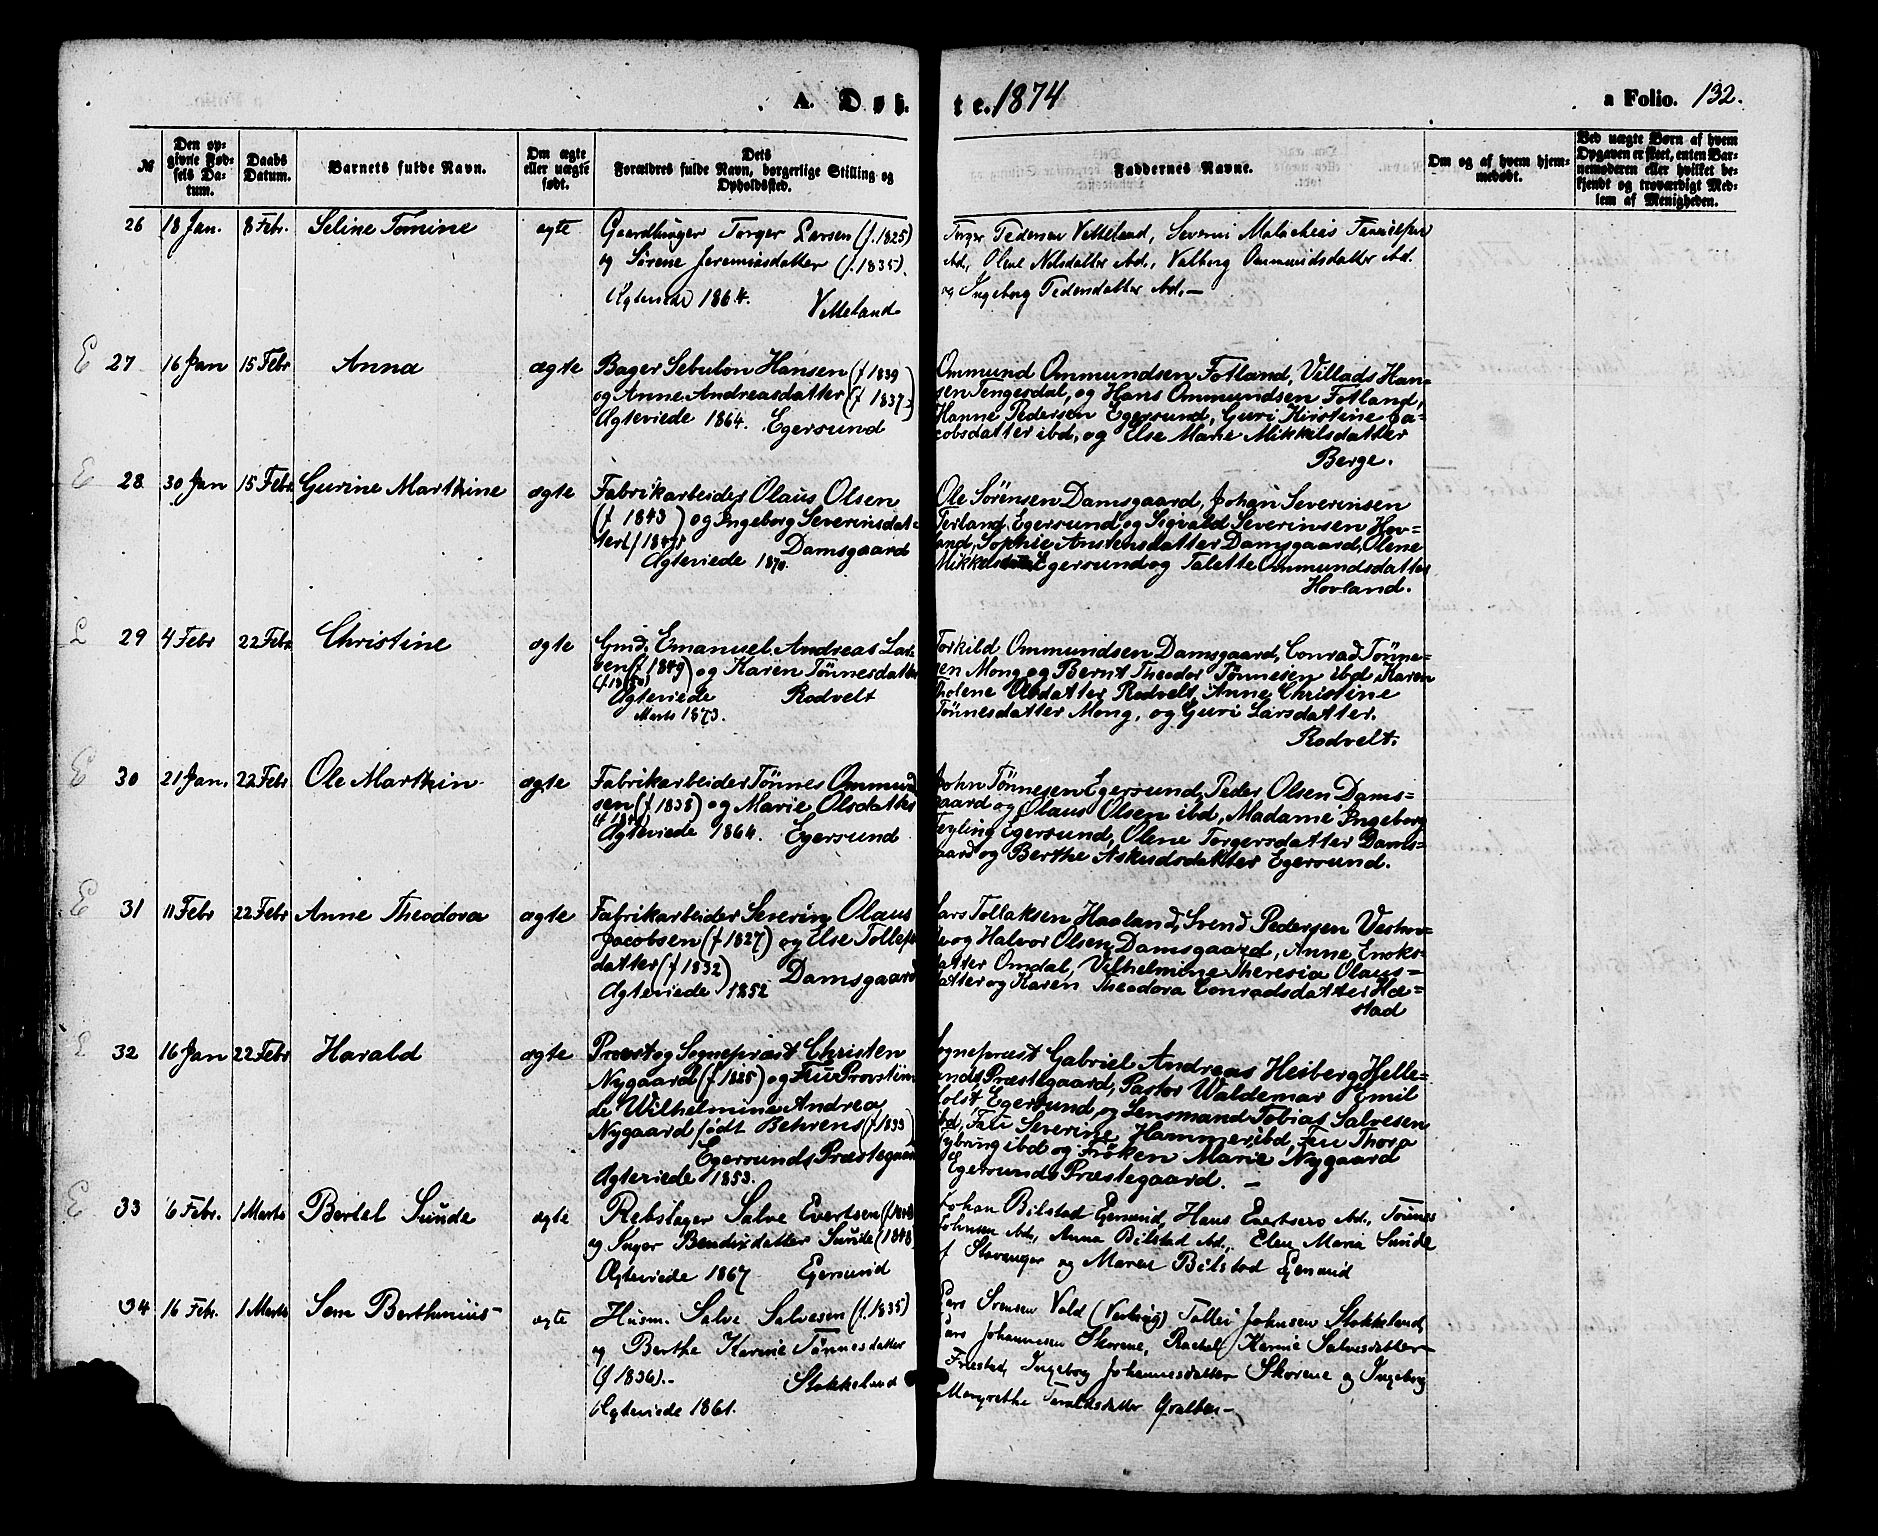 A. Døb-
te. 1874
a Folio. 132.
№
Den op-
givne Fød-
sels Da-
tum.
Daabs
Datum.
Barnets fulde Navn.
Om ægte
eller uægte
født.
Dets
Forældres fulde Navn, borgerlige Stilling og
Opholdssted.
Faddernes Navne.
Om og af hvem hjem-
medøbt.
Ved uægte Børn af hvem
Opgaven er skeet, enten Bar-
nemoderen eller hvilket be-
kjendt og troværdigt Med-
lem af Menigheden.
26 18 Jan. 8 Febr. Seline Tomine ægte
Gaardbruger Torger Larsen (f. 1825)
og Sørene Jeremiasdatter (f. 1835).
Ægteviede 1864. Vetteland
Torger Pedersen Vetteland, Severin Malachias
ibd., Olene Nelsdatter ibd., Valborg Ommundsdatter ibd.
og Ingeborg Pedersdatter ibd.
E 27 16 Jan 15 Febr Anna ægte
Bager Sebulon Hansen (f 1839
og Anne Andreasdatter (f 1837.)
Ægteviede 1864. Egersund
Ommund Ommundsen Fotland, Villads Han-
sen Tengesdal, og Hans Ommundsen Fotland,
Hanne Pedersen Egersund, Guri Kirstine Ja-
cobsdatter ibd, og Else Marie Mikkilsdatter
Berge.
E 28 30 Jan 15 Febr Gurine Marthine ægte
Fabrikarbeider Olaus Olsen
(f 1843) og Ingeborg Severinsdat-
ter
Ægteviede 1870. Damsgaard
Ole Sørensen Damsgaard, Johan Severinsen
Terland, Egersund og Sigvald Severinsen Hov-
land, Sophie Anstensdatter Damsgaard, Olene
Egersund og Talette Ommundsdatter
Hovland.
29 4 Febr 22 Febr Christine ægte
Gmd. Emanuel Andreas Lar-
sen (f 1849) og Karen Tønnesdatter
(f 1850)
Ægteviede Rodvelt
Marts 1873.
Torkild Ommundsen Damsgaard, Conrad Tønne-
sen Mong og Bernt Theodor Tønnesen ibd, Karen
Tholene datter Rodvelt, Anne Christine
Tønnesdatter Mong, og Guri Larsdatter.
Rodvelt.
E 30 21 Jan. 22 Febr Ole Marthin ægte
Fabrikarbeider Tønnes Ommund
sen (f 1838) og Marie Olsdatter
Ægteviede 1864. Egersund
John Tønnesen Egersund, Peder Olsen Dams-
gaard og Olaus Olsen ibd, Madame Ingeborg
Feyling Egersund, Olene Torgersdatter Dams-
gaard og Berthe Aslaksdatter Egersund.
E 31 11 Febr 22 Febr Anne Theodora ægte
Fabrikarbeider Severin Olaus
Jacobsen (f 1827) og Else Tollefs
datter (f 1832) Damsgaard
Ægteviede 1852
Lars Tollaksen Haaland, Svend Pedersen Veshov-
de og Halvor Olsen Damsgaard, Anne Enoks-
datter Omdal, Vilhelmine Theresia Olaus-
datter og Karen Theodora Conradsdatter Hæ-
stad
E 32 16 Jan 22 Febr Harald ægte
Provst og Sognepræst Christen
Nygaard (f 1825) og Frue Provstin
de Wilhelmine Andrea
Nygaard født Behrens (f 1833)
Egersunds Præstegaard
Ægteviede 1853.
Sognepræst Gabriel Andreas Heiberg Helle-
lands Præstegaard, Pastor Waldemar Emil
Holst, Egersund og Lensmand Tobias Salvesen
ibd, Frue Severine Hammer ibd, Frue Thora
Nybring ibd og Frøken Marie Nygaard
Egersunds Præstegaard. —
E 33 6 Febr. 1 Marts Bertel Sunde ægte
Rebslager Salve Evertsen
og Inger Bendixdatter Sunde (1848
Ægteviede 1867 Egersund
Johan Bilstad Egersund, Hans Evertsen ibd., Tønnes
Johnsen ibd., Anna Bilstad ibd., Elen Maria Sunde
af Stavanger og Maren Bilstad Egersund
34 16 Febr. 1 Marts Sem Berthinius ægte
Husm. Salve Salvesen (f. 1835)
og Berthe Karine Tønnesdatter
(f 1836).- Stokkeland
Ægteviede 1861.
Lars Svensen Vold Tollei Johnsen Stokkeland,
Lars Johannesen Skorene, Rachel Karine Salvesdatter
Fristad, Ingeborg Johannesdatter Skorene og Ingeborg
Margrethe datter